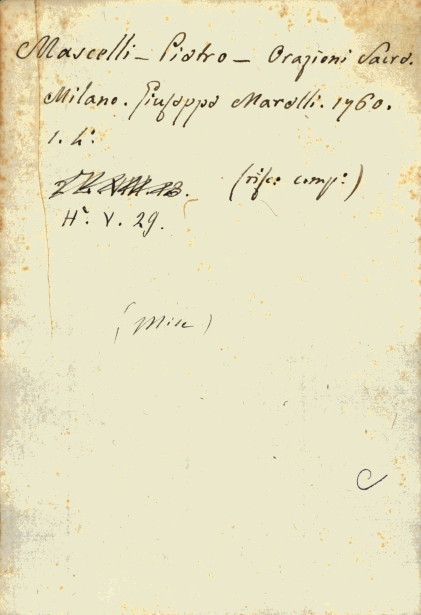 Mascelli - Pietro - Orazioni Sacre.
Milano. Giuseppe Marelli. 1760.
1. 4º.
(rifc: comp:)
Hº. V. 29.
(Misc)
C